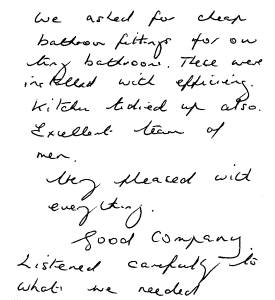 We asked for cheap
bathroom fittings for our
tiny bathroom. These were
installed with efficiency.
Kitchen tidied up also.
Excellent team of
men.
Very pleaced with
everything.
Good Company
Listened carefully to
what we needed